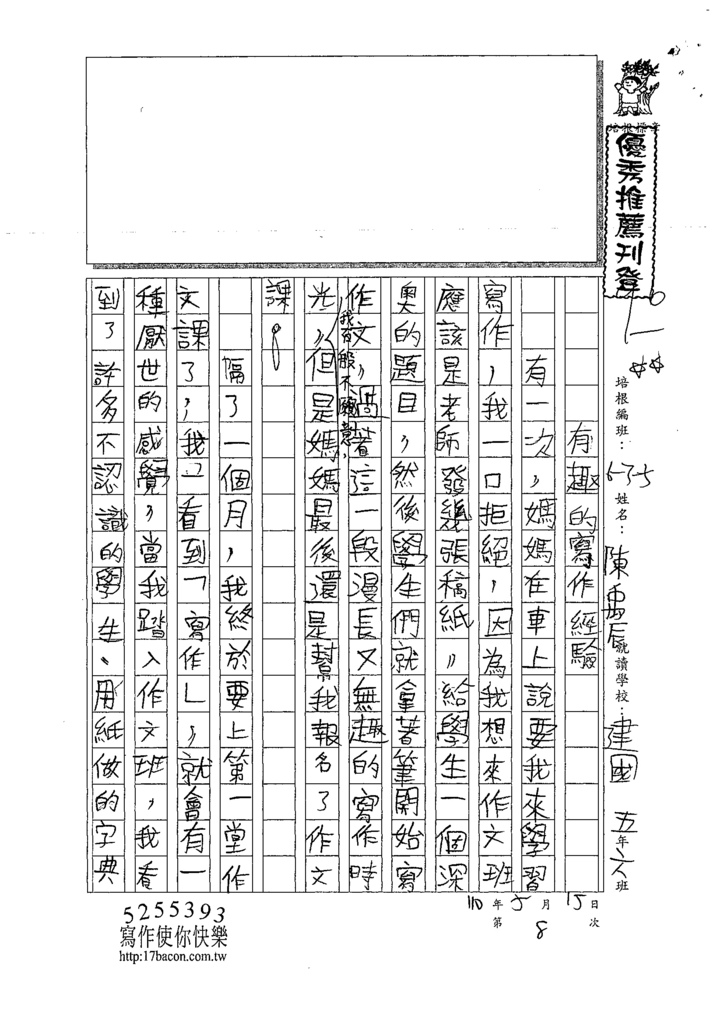 培根標章
優秀推薦刊登
培根編班：635 姓名：陳禹辰 就讀學校：建國 五年六班
110年5月15日
第8次
有趣的寫作經驗
有一次，媽媽在車上說要我來學習
寫作，我一口拒絕，因為我想來作文班
應該是老師發幾張稿紙，給學生一個深
奧的題目，然後學生們就拿著筆開始寫
作文，過著這一段漫長又無趣的寫作時
光，我百般不願意，但是媽媽最後還是幫我報名了作文
課。
隔了一個月，我終於要上第一堂作
文課了，我一看到「寫作」，就會有一
種厭世的感覺，當我踏入作文班，我看
到了許多不認識的學生、用紙做的字典
5255393
寫作使你快樂
http:17bacon.com.tw